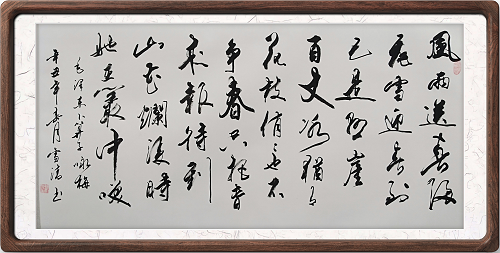 風雨送春歸
飛雪迎春到
已是懸崖
百丈冰猶有
花枝俏也不
争春只把春
來報待到
山花爛漫時
她在叢中笑
毛泽东卜算子咏梅
辛丑年春月雪清书